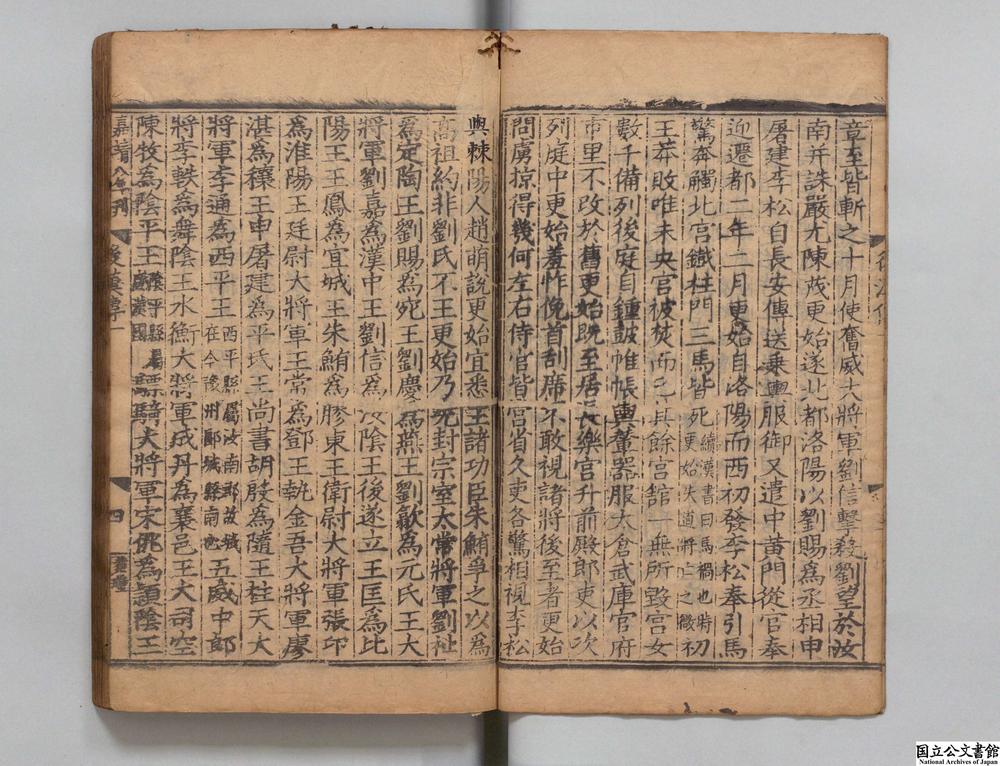 章至皆斬之十月使奮威大將軍劉信擊殺劉望於汝
南并誅嚴尤陳茂更始遂北都洛陽以劉賜爲丞相申
屠建李松自長安傳送乗輿服御又遣中黄門從官奉
迎遷都二年二月更始自洛陽而西初發李松奉引馬
驚奔觸北宫鐡柱門三馬皆死續漢書曰馬禍也時更始失道將亡之徵初
王莽敗唯未央宫被焚而已其餘宫舘一無所毁宫女
數千備列後庭自鍾鼓帷帳輿輦器服太倉武庫官府
市里不改於舊更始既至居長樂宫升前殿郎吏以次
列庭中更始羞怍俛首刮席不敢視諸將後至者更始
問虜掠得幾何左右侍官皆宫省久吏各驚相視李松
與棘陽人趙萌說更始宜悉王諸功臣朱鮪爭之以爲
高祖約非劉氏不王更始乃先封宗室太常將軍劉祉
爲定陶王劉賜爲宛王劉慶爲燕王劉歙爲元氏王大
將軍劉嘉爲漢中王劉信爲汝陰王後遂立王匡爲比
陽王王鳳爲宜城王朱鮪爲膠東王衛尉大將軍張卬
爲淮陽王廷尉大將軍王常爲鄧王執金吾大將軍廖
湛爲穰王申屠建爲平氏王尚書胡殷爲隨王柱天大
將軍李通爲西平王西平縣屬汝南郡故城在今豫州郾城縣南也五威中郎
將李軼爲舞陰王水衡大將軍成丹爲襄邑王大司空
陳牧爲陰平王陰平縣屬廣漢國驃騎大將軍宋佻爲潁陰王
嘉靖八年刊
後漢傳一
四
国立公文書館
National Archives of Japan